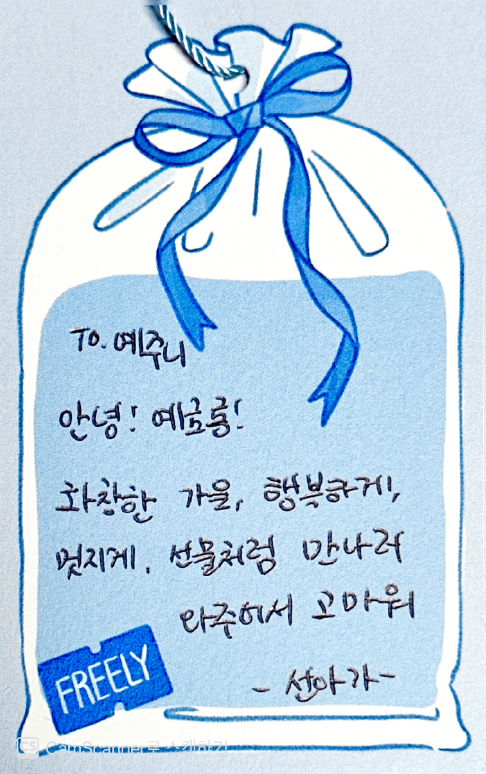 To. 예주니
안녕! 예쁘룽!
화창한 가을, 행복하게,
멋지게, 선물처럼 만나러
와주어서 고마워
- 선아가 -
FREELY
CS CamScanner로 스캔하기